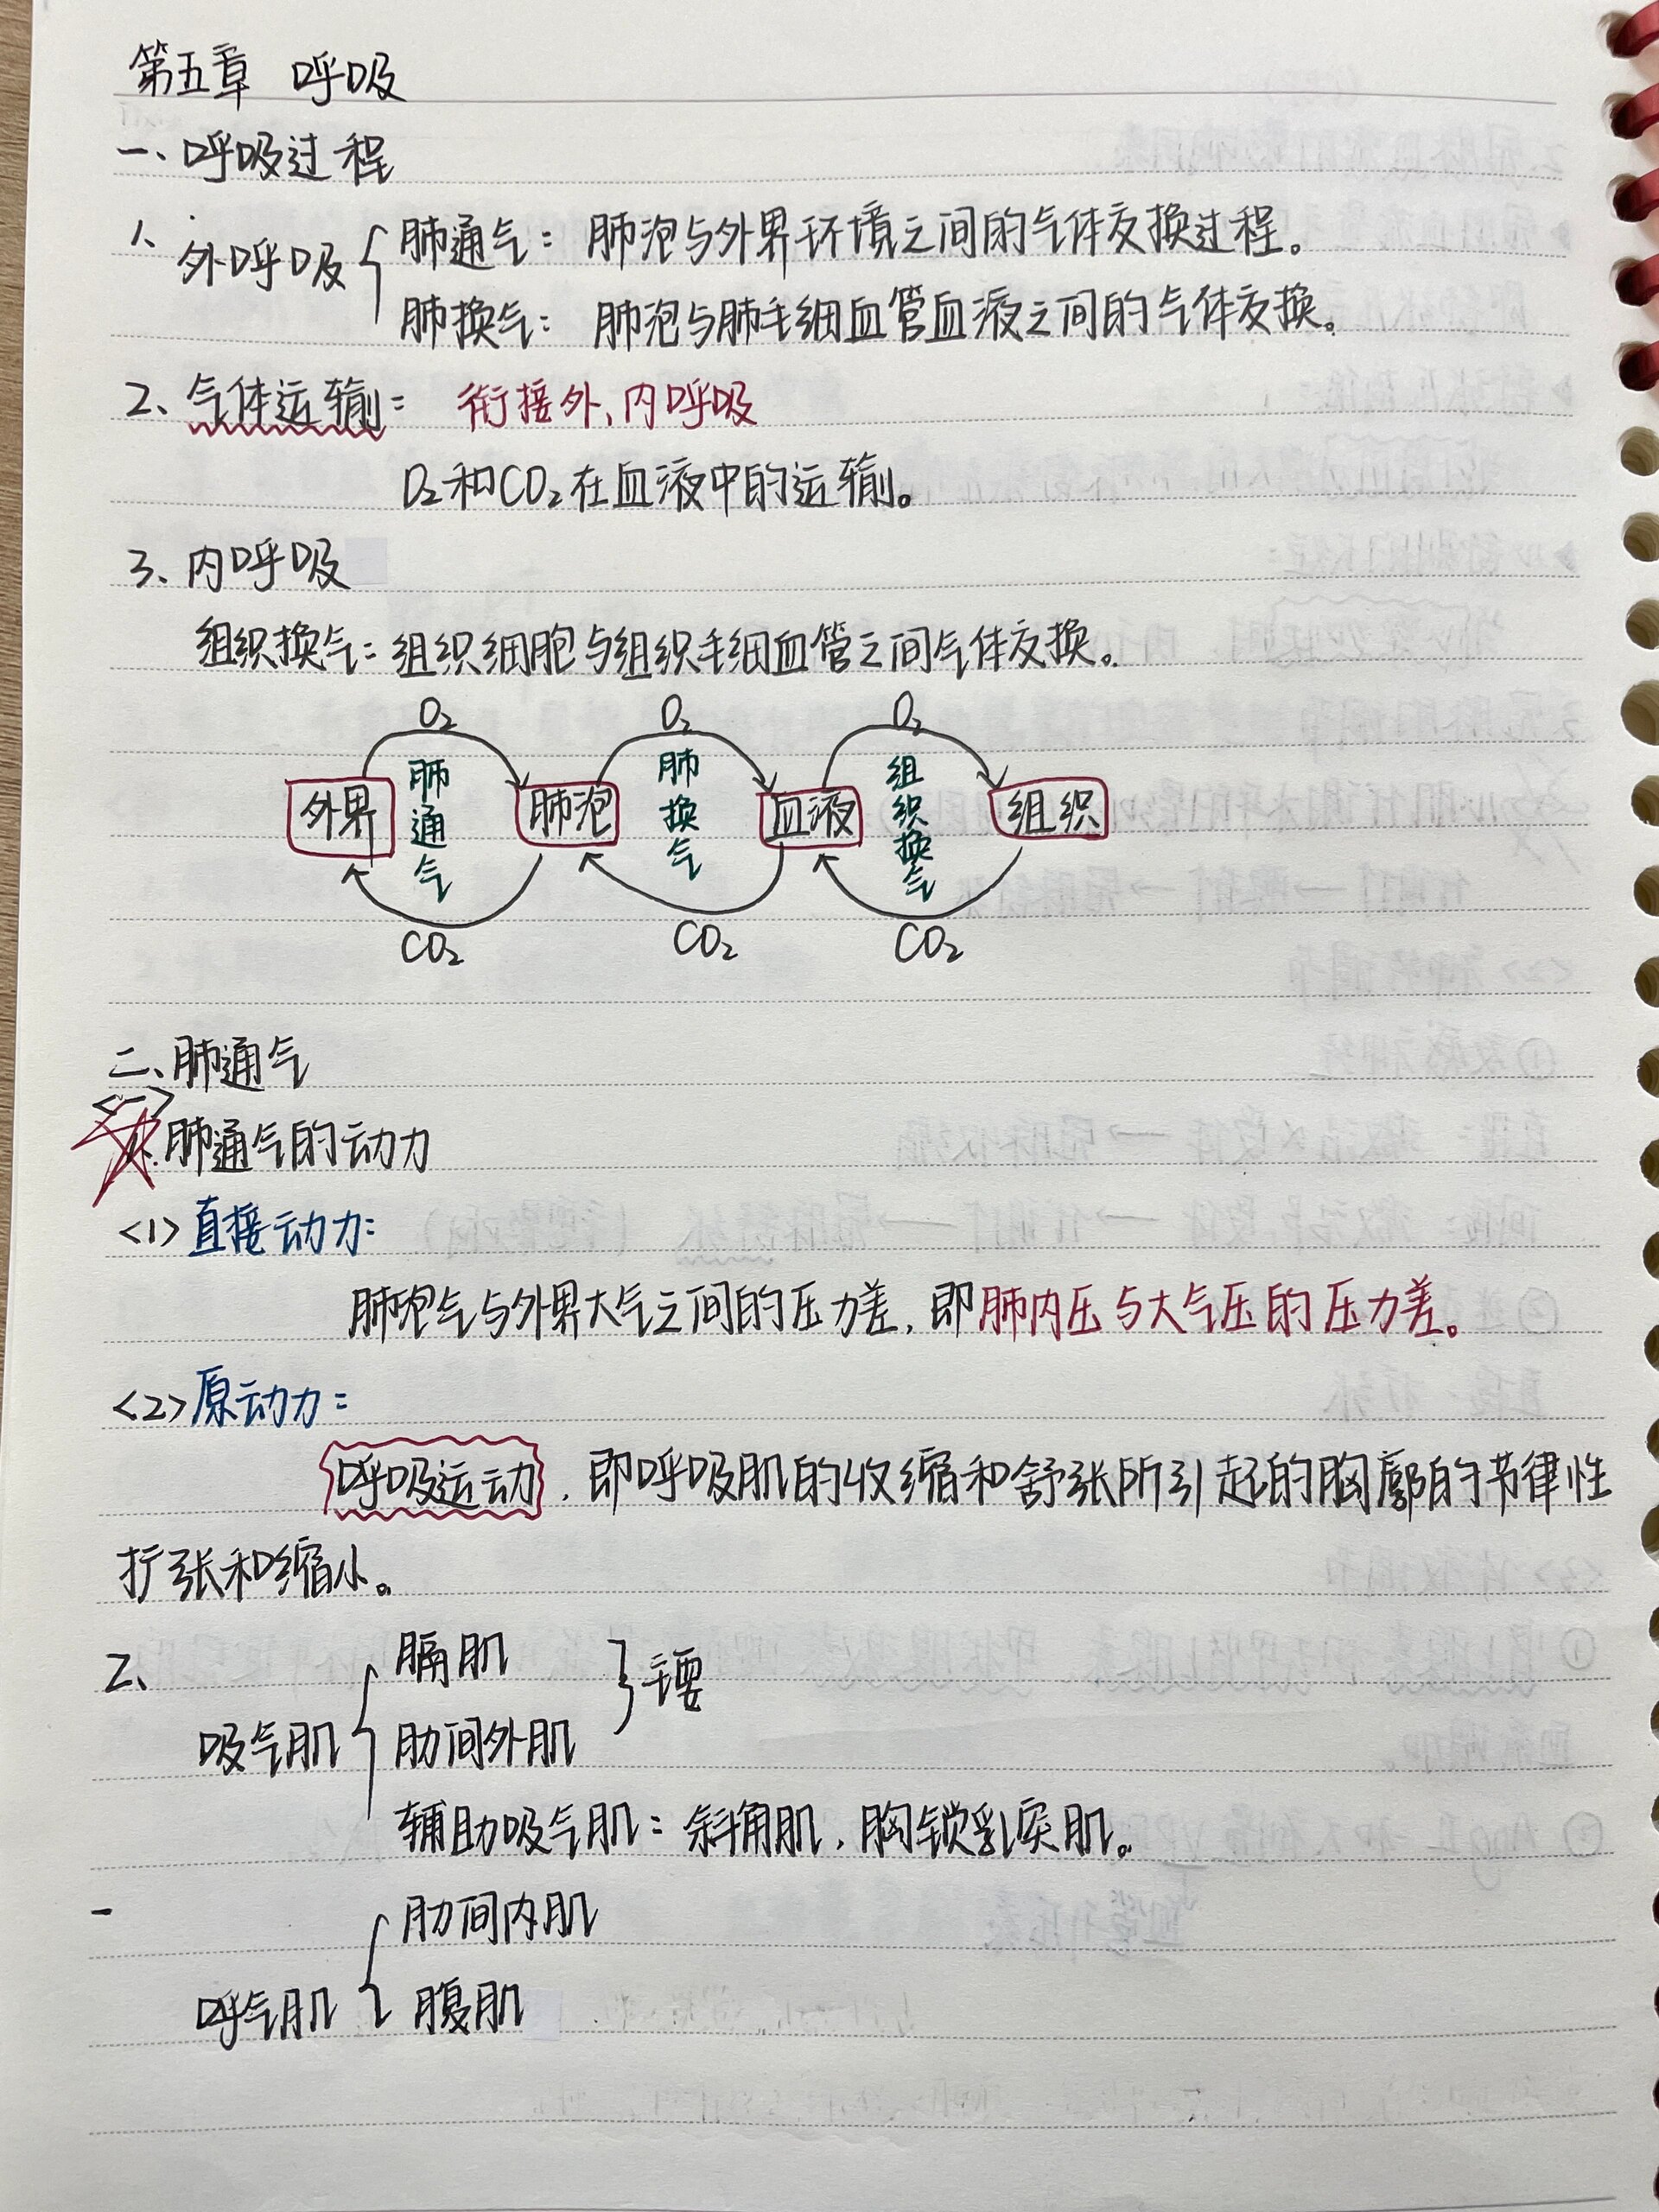 第五章 呼吸
一、呼吸过程
1、外呼吸 { 肺通气：肺泡与外界环境之间的气体交换过程。
肺换气：肺泡与肺毛细血管血液之间的气体交换。
2、气体运输： 衔接外、内呼吸
O₂和CO₂在血液中的运输。
3、内呼吸
组织换气：组织细胞与组织毛细血管之间气体交换。
O₂ O₂ O₂
外界 肺通气 肺泡 肺换气 血液 组织换气 组织
CO₂ CO₂ CO₂
二、肺通气
<一>
1.肺通气的动力
<1>直接动力：
肺泡气与外界大气之间的压力差，即肺内压与大气压的压力差。
<2>原动力：
呼吸运动，即呼吸肌的收缩和舒张所引起的胸廓的节律性
扩张和缩小。
2、
吸气肌 { 膈肌
肋间外肌 } 主要
辅助吸气肌：斜角肌，胸锁乳突肌。
呼气肌 { 肋间内肌
腹肌